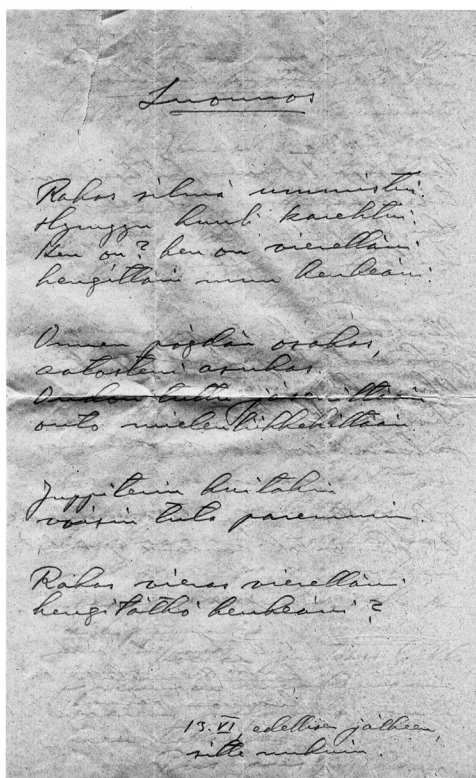 Luonnos
Rakas silmä ummistui.
Hymyyn huuli karehtui.
Ken on? ken on vierelläin
hengittäin mun henkeäin.
Onnen pöydän osakas,
aatosteni asukas.
Oudon tuttu jäsenittäin
outo mielenliikkehittäin
Juppiterin
voisin tuta paremmin.
Rakas vieras vierelläin
hengitätkö henkeäin?
13.VI, edellisen jälkeen,
sitte nukuin.